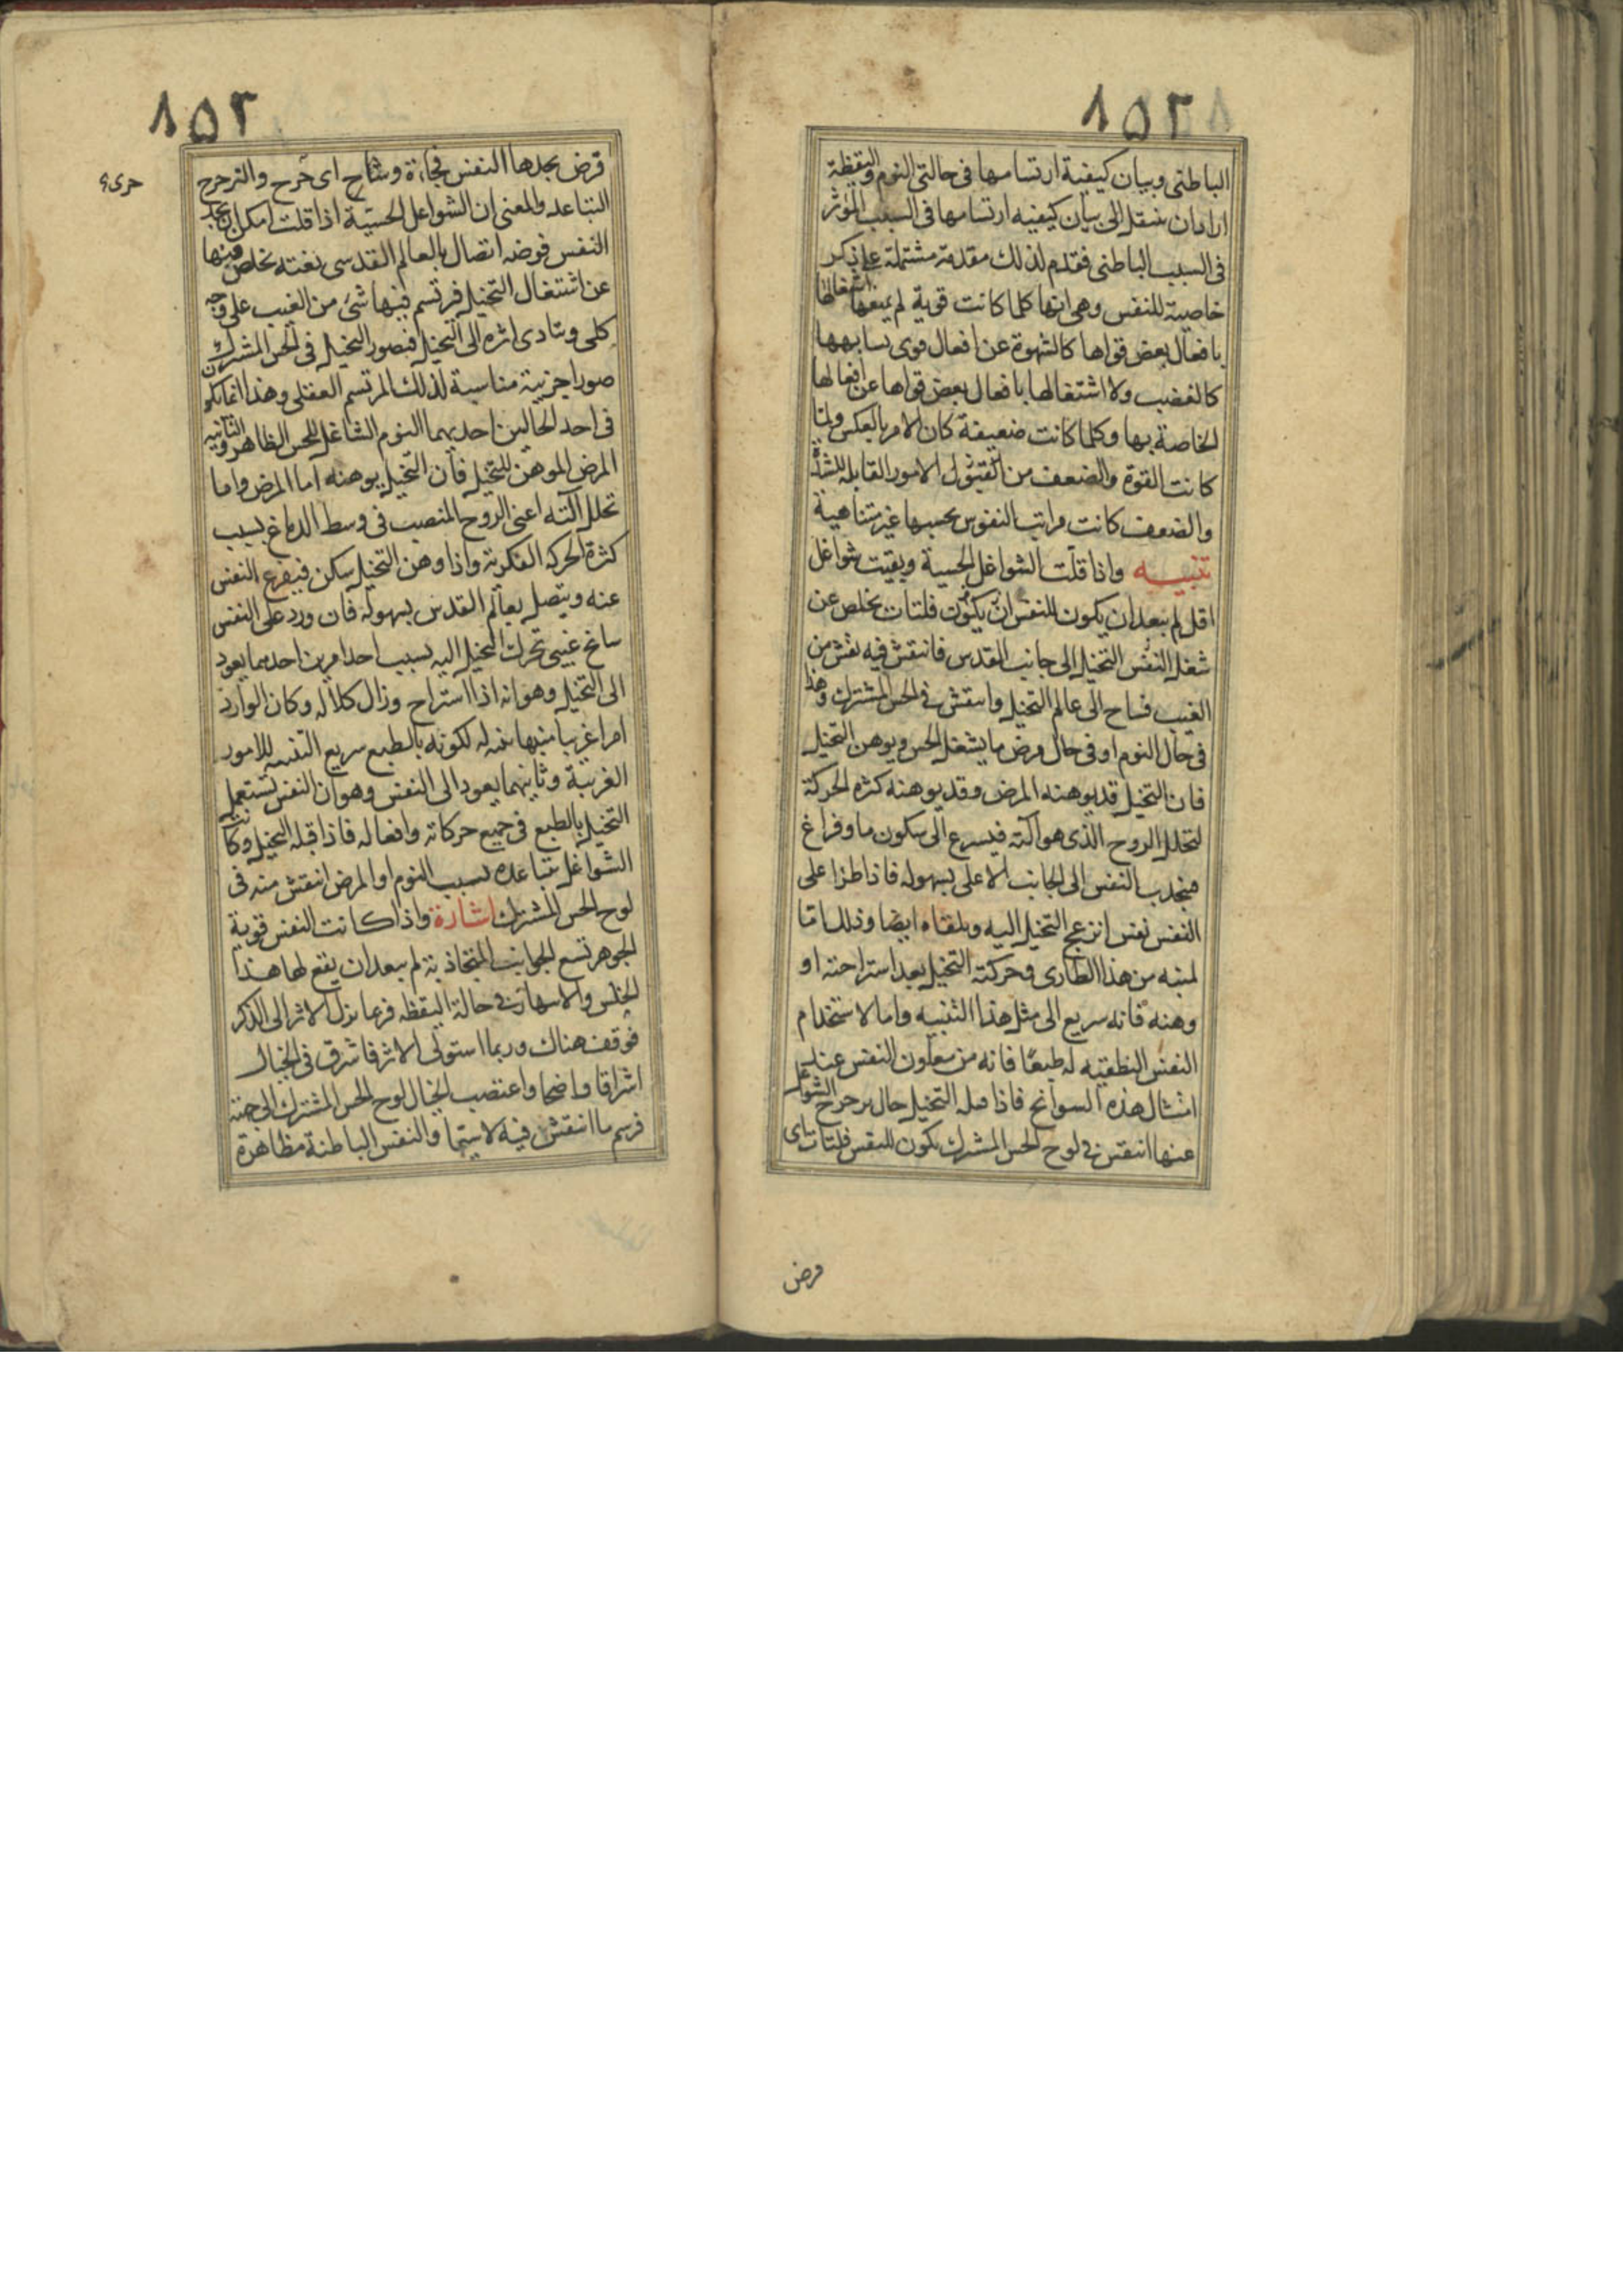 ١٥٢
الباطنى وبيان كيفية ارتسامها فى حالتى النوم واليقظة
اراد ان ينتقل الى بيان كيفيه ارتسامها فى السبب المؤثر
فى السبب الباطنى فقدم لذلك مقدمة مشتملة على ذكر
خاصية للنفس وهى انها كلما كانت قوية لم يمنعها اشتغالها
بافعال بعض قواها كالشهوة عن افعال قوى يشابهها
كالغضب ولا اشتغالها بافعال بعض قواها عن افعالها
الخاصة بها وكلما كانت ضعيفة كان الامر بالعكس ولما
كانت القوة والضعف من الامور القابله للشدة
والضعف كانت مراتب النفوس بحسبها غير متناهية
تنبيه واذا قلت الشواغل الحسية وبقيت شواغل
اقل لم يبعد ان يكون للنفس ان يكون فلتات يخلص عن
شغل النفس التخيل الى جانب القدس فانتقش فيه نقش من
الغيب فساح الى عالم التخيل وانتقش فى الحس المشترك وهذا
فى حال النوم او فى حال مرض ما يشغل الحس ويوهن التخيل
فان التخيل قد يوهنه المرض وقد يوهنه كثره الحركة
لتحلل الروح الذى هو آلته فيسرع الى سكون ما وفراغ
فينجذب النفس الى الجانب الاعلى بسهوله فاذا طرا على
النفس نقش انزعج التخيل اليه وتلقاه ايضا وذلك اما
لمنبه من هذا الطارى وحركة التخيل بعد استراحته او
وهنه فانه سريع الى مثل هذا التنبيه واما لاستخدام
النفس النطقيه له طبعا فانه من معاون النفس عند
امثال هذه السوانح فاذا قبله التخيل حال تزحزح الشواغل
عنها انتقش فى لوح الحس المشترك يكون للنفس فلتات اى
فرض
١٥٣
فرض يجدها النفس فجاءة وساح اى جرى والتزحزح
جرى
التباعد والمعنى ان الشواغل الحسيّة اذا قلت امكن ان يجد
النفس فرضه اتصال بالعالم القدسى بغتة يخلص فيها
عن اشتغال التخيل فرتسم فيها شئ من الغيب على وجه
كلى ويتادى اثره الى التخيل فيصور التخيل فى الحس المشترك
صورا جزيية مناسبة لذلك المرتسم العقلى وهذا انما يكون
فى احد الحالين احديهما النوم الشاغل للحس الظاهر والثانيه
المرض الموهن للتخيل فان التخيل يوهنه اما المرض واما
تحلل آلته اعنى الروح المنصب فى وسط الدماغ بسبب
كثرة الحركه الفكرية واذا وهن التخيل سكن فيفرغ النفس
عنه ويتصل بعالم القدس بسهولة فان ورد على النفس
سانح غيبى تحرك التخيل اليه بسبب احد امرين احدهما يعود
الى التخيل وهو انه اذا استراح وزال كلاله وكان الوارد
امرا غريبا منبها تنبه له لكونه بالطبع سريع التنبه للامور
الغريبة وثانيهما يعود الى النفس وهو ان النفس تستعمل
التخيل بالطبع فى جميع حركاته وافعاله فاذا قبله التخيل وكانت
الشواغل متباعدة بسبب النوم او المرض انتقش منه فى
لوح الحس المشترك اشارة واذا كانت النفس قوية
الجوهر تسع الجوانب المتجاذبة لم يبعد ان يقع لها هذا
الخلس والانتهاز فى حالة اليقظه فربما نزل الاثر الى الذكر
فوقف هناك وربما استولى الاثر فاشرق فى الخيال
اشراقا واضحا واغتصب الخيال لوح الحس المشترك الى جهته
فرسم ما انتقش فيه لاسيما والنفس الباطنة مظاهرة